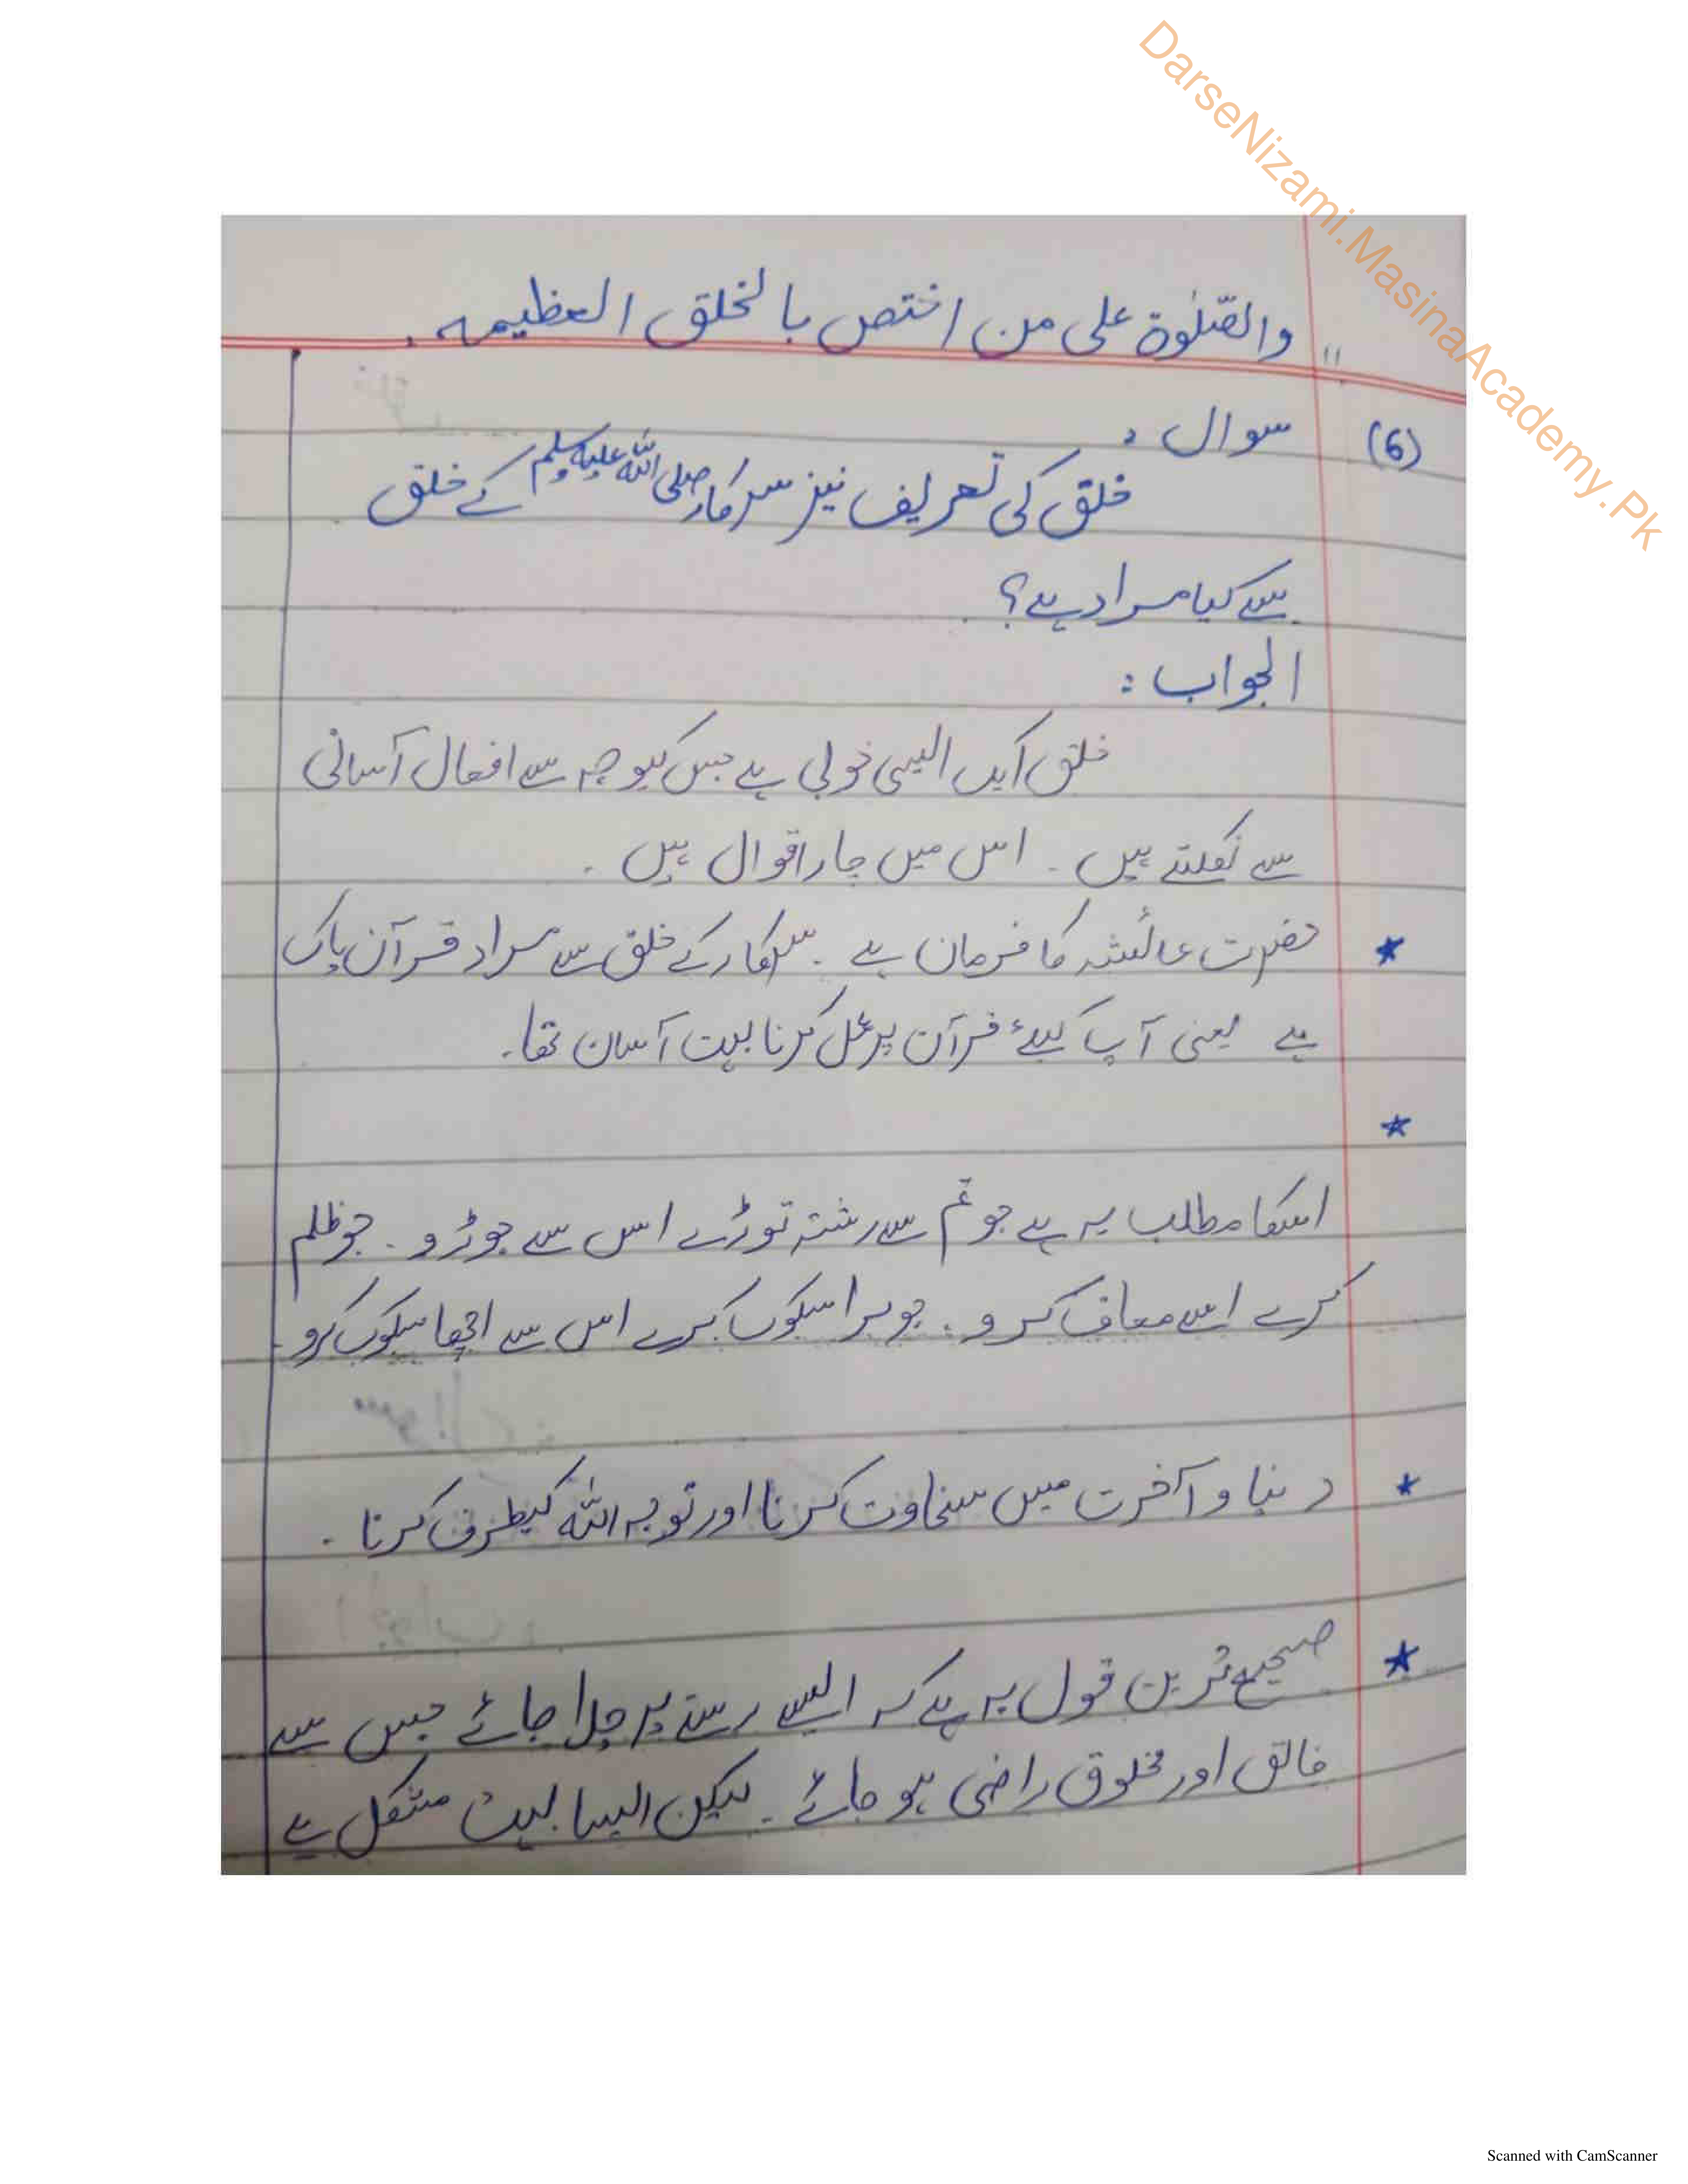 DarseNizami.MasinaAcademy.Pk
" والصّلٰوة على من اختص بالخلق العظيمہ .
(6) سوال :
خلق کی تعریف نیز سرکار صلی اللہ علیہ وسلم کے خلق
سے کیا مراد ہے؟
الجواب :
خلق ایک ایسی خوبی ہے جس کیوجہ سے افعال آسانی
سے نکلتے ہیں ۔ اس میں چار اقوال ہیں ۔
★ حضرت عائشہ کا فرمان ہے ۔ سرکار کے خلق سے مراد قرآن پاک
ہے یعنی آپ کیلئے قرآن پر عمل کرنا بہت آسان تھا۔
★
اسکا مطلب یہ ہے جو تم سے رشتہ توڑے اس سے جوڑو ۔ جو ظلم
کرے اسے معاف کرو ۔ جو برا سکوں کرے اس سے اچھا سکوں کرو ۔
★ دنیا و آخرت میں سخاوت کرنا اور توجہ اللہ کیطرف کرنا ۔
★ صحیح ترین قول یہ ہے کہ ایسے رستے پر چلا جائے جس سے
خالق اور مخلوق راضی ہو جائے ۔ لیکن ایسا بہت مشکل ہے
Scanned with CamScanner